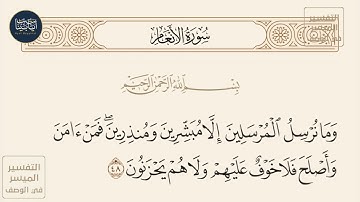 سُورَةُ الأَنْعَام
بِسْمِ اللَّهِ الرَّحْمَٰنِ الرَّحِيمِ
وَمَا نُرْسِلُ ٱلْمُرْسَلِينَ إِلَّا مُبَشِّرِينَ وَمُنذِرِينَۖ فَمَنْ ءَامَنَ
وَأَصْلَحَ فَلَا خَوْفٌ عَلَيْهِمْ وَلَا هُمْ يَحْزَنُونَ ٤٨
التفسير
الميسر
في الوصف
التفسير
الميسر
في الوصف